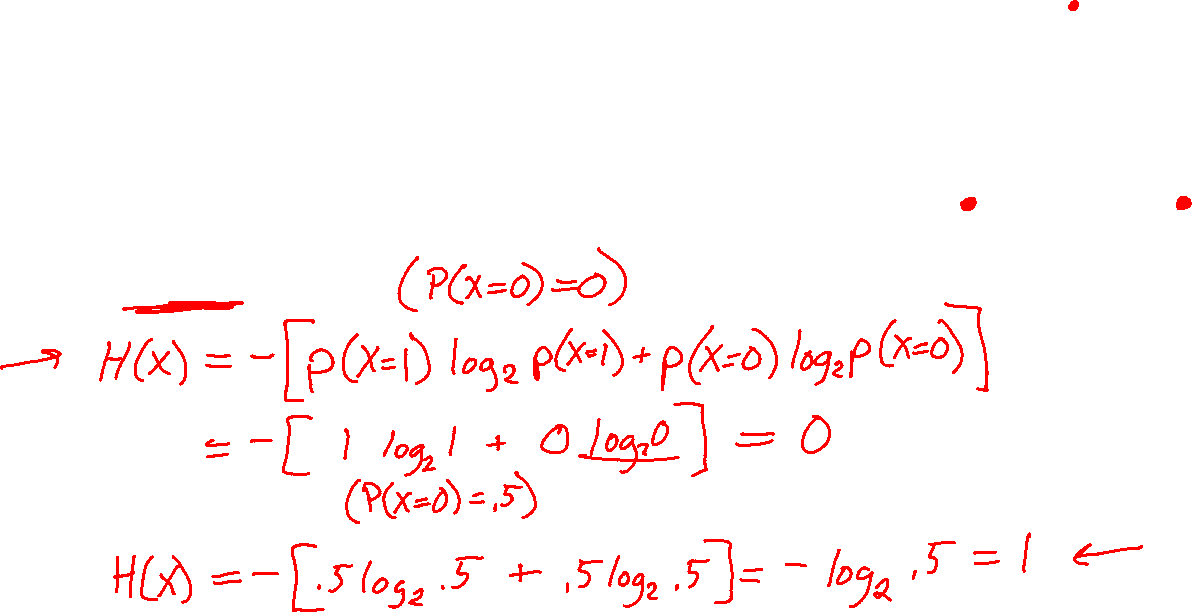 (P(X=0)=0)
→ H(X) = -[p(X=1) log₂ p(X=1) + p(X=0) log₂ p(X=0)]
= -[1 log₂ 1 + 0 log₂ 0] = 0
(P(X=0)=.5)
H(X) = -[.5 log₂ .5 + .5 log₂ .5] = - log₂ .5 = 1 ←